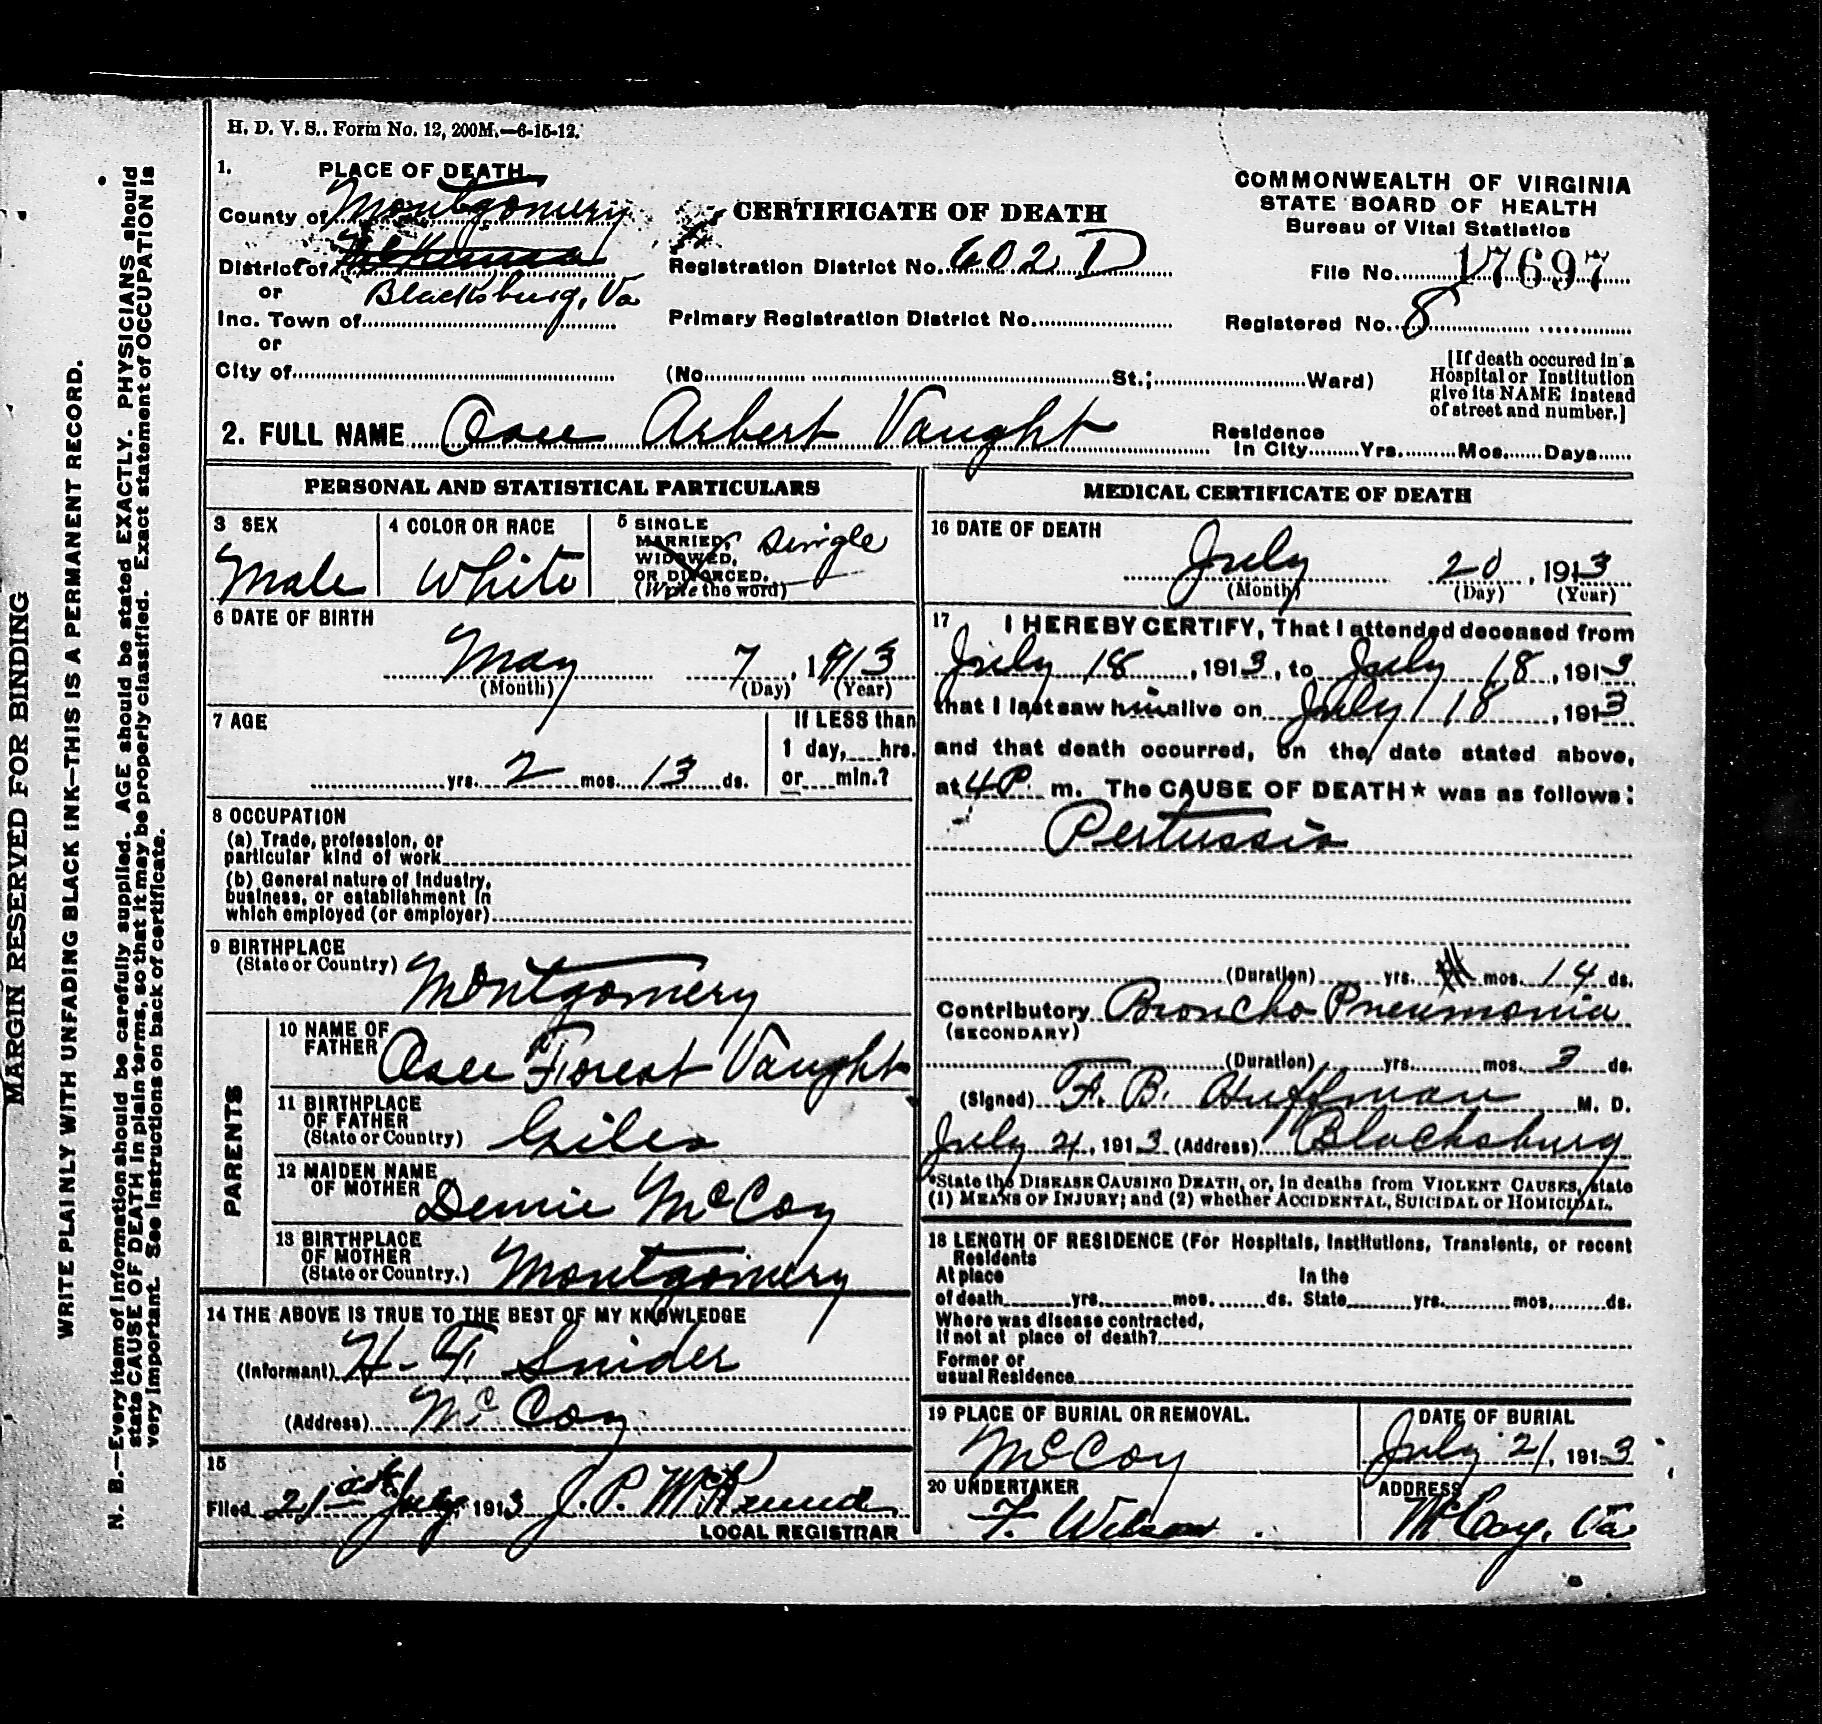 H. D. V. S.. Form No. 12, 200M.—6-15-12.
1. PLACE OF DEATH
County of Montgomery
District of
or Blacksburg, Va
Inc. Town of
or
City of
CERTIFICATE OF DEATH
Registration District No. 602 D
Primary Registration District No.
(No. St.; Ward)
COMMONWEALTH OF VIRGINIA
STATE BOARD OF HEALTH
Bureau of Vital Statistics
File No. 17697
Registered No. 8
[If death occured in a
Hospital or Institution
give its NAME instead
of street and number.]
2. FULL NAME Osee Arbert Vaught
Residence
In City Yrs. Mos. Days
PERSONAL AND STATISTICAL PARTICULARS
3 SEX
Male
4 COLOR OR RACE
White
5 SINGLE
MARRIED,
WIDOWED,
OR DIVORCED.
(Write the word)
Single
6 DATE OF BIRTH
May 7, 1913
(Month) (Day) (Year)
7 AGE
yrs. 2 mos. 13 ds.
If LESS than
1 day, hrs.
or min.?
8 OCCUPATION
(a) Trade, profession, or
particular kind of work
(b) General nature of Industry,
business, or establishment in
which employed (or employer)
9 BIRTHPLACE
(State or Country) Montgomery
PARENTS
10 NAME OF
FATHER Osee Forest Vaught
11 BIRTHPLACE
OF FATHER
(State or Country) Giles
12 MAIDEN NAME
OF MOTHER Dennie McCoy
13 BIRTHPLACE
OF MOTHER
(State or Country.) Montgomery
14 THE ABOVE IS TRUE TO THE BEST OF MY KNOWLEDGE
(Informant) H. F. Snider
(Address) McCoy
15
Filed 21st July, 1913 J. P.
LOCAL REGISTRAR
MEDICAL CERTIFICATE OF DEATH
16 DATE OF DEATH
July 20, 1913
(Month) (Day) (Year)
17 I HEREBY CERTIFY, That I attended deceased from
July 18, 1913, to July 18, 1913
that I last saw him alive on July 18, 1913
and that death occurred, on the date stated above,
at 4 P. m. The CAUSE OF DEATH* was as follows:
Pertussis
(Duration) yrs. mos. 14 ds.
Contributory Broncho Pneumonia
(SECONDARY)
(Duration) yrs. mos. 3 ds.
(Signed) F. B. Huffman M. D.
July 21, 1913 (Address) Blacksburg
*State the DISEASE CAUSING DEATH, or, in deaths from VIOLENT CAUSES, state
(1) MEANS OF INJURY; and (2) whether ACCIDENTAL, SUICIDAL or HOMICIDAL.
18 LENGTH OF RESIDENCE (For Hospitals, Institutions, Transients, or recent
Residents
At place In the
of death yrs. mos. ds. State yrs. mos. ds.
Where was disease contracted,
If not at place of death?
Former or
usual Residence
19 PLACE OF BURIAL OR REMOVAL.
McCoy
DATE OF BURIAL
July 21, 1913
20 UNDERTAKER
F. Wilson
ADDRESS
McCoy, Va
MARGIN RESERVED FOR BINDING
WRITE PLAINLY WITH UNFADING BLACK INK—THIS IS A PERMANENT RECORD.
N. B.—Every item of information should be carefully supplied. AGE should be stated EXACTLY. PHYSICIANS should
state CAUSE OF DEATH in plain terms, so that it may be properly classified. Exact statement of OCCUPATION is
very important. See instructions on back of certificate.